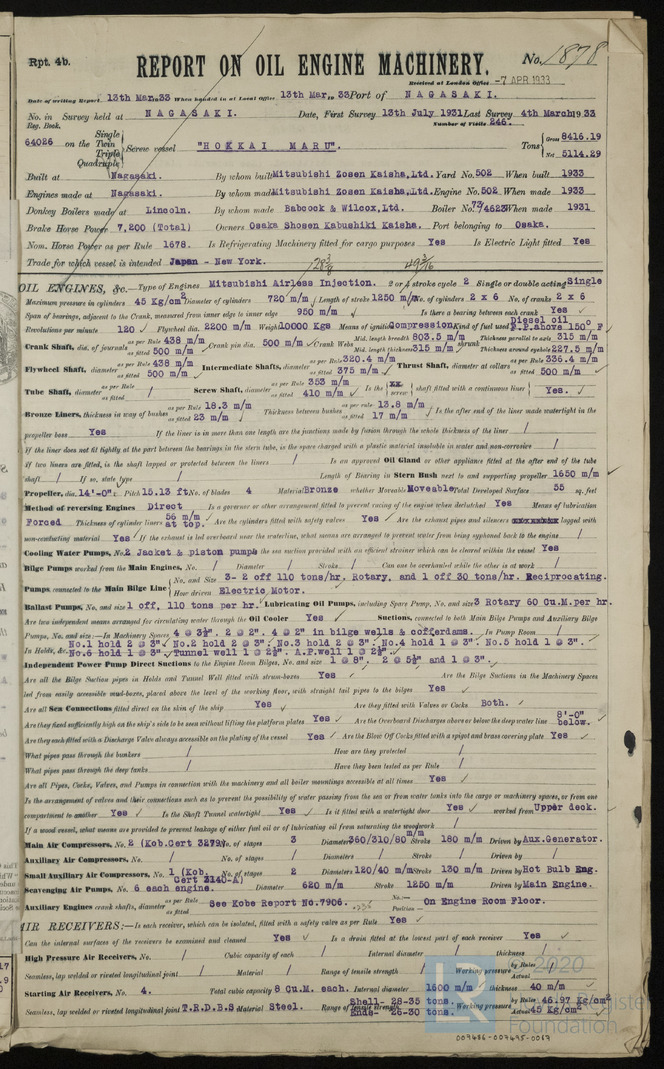 Rpt. 4b.
REPORT ON OIL ENGINE MACHINERY.
No. 1878
Received at London Office -7 APR 1933
Date of writing Report 13th Mar. 33 When handed in at Local Office 13th Mar. 19 33 Port of NAGASAKI.
No. in Survey held at NAGASAKI. Date, First Survey 13th July 1931 Last Survey 4th March 19 33
Reg. Book. Number of Visits 246.
64026 on the Single Twin Triple Quadruple Screw vessel "HOKKAI MARU". Tons Gross 8416.19 Net 5114.29
Built at Nagasaki. By whom built Mitsubishi Zosen Kaisha, Ltd. Yard No. 502 When built 1933
Engines made at Nagasaki. By whom made Mitsubishi Zosen Kaisha, Ltd. Engine No. 502 When made 1933
Donkey Boilers made at Lincoln. By whom made Babcock & Wilcox, Ltd. Boiler No. 73/4623 When made 1931
Brake Horse Power 7,200 (Total) Owners Osaka Shosen Kabushiki Kaisha. Port belonging to Osaka.
Nom. Horse Power as per Rule 1678. Is Refrigerating Machinery fitted for cargo purposes Yes Is Electric Light fitted Yes
Trade for which vessel is intended Japan - New York.
28 3/8 49 3/16
OIL ENGINES, &c.—Type of Engines Mitsubishi Airless Injection. 2 or 4 stroke cycle 2 Single or double acting Single
Maximum pressure in cylinders 45 Kg/cm² Diameter of cylinders 720 m/m Length of stroke 1250 m/m No. of cylinders 2 x 6 No. of cranks 2 x 6
Span of bearings, adjacent to the Crank, measured from inner edge to inner edge 950 m/m Is there a bearing between each crank Yes
Revolutions per minute 120 Flywheel dia. 2200 m/m Weight 10000 Kgs Means of ignition compression Kind of fuel used Diesel oil F.P. above 150° F
Crank Shaft, dia. of journals as per Rule 438 m/m as fitted 500 m/m Crank pin dia. 500 m/m Crank Webs Mid. length breadth 803.5 m/m Mid. length thickness 315 m/m shrunk Thickness parallel to axis 315 m/m Thickness around eyehole 227.5 m/m
Flywheel Shaft, diameter as per Rule 438 m/m as fitted 500 m/m Intermediate Shafts, diameter as per Rule 320.4 m/m as fitted 375 m/m Thrust Shaft, diameter at collars as per Rule 336.4 m/m as fitted 500 m/m
Tube Shaft, diameter as per Rule as fitted / Screw Shaft, diameter as per Rule 353 m/m as fitted 410 m/m Is the screw shaft fitted with a continuous liner Yes.
Bronze Liners, thickness in way of bushes as per Rule 18.3 m/m as fitted 23 m/m Thickness between bushes as per rule 13.8 m/m as fitted 17 m/m Is the after end of the liner made watertight in the
propeller boss Yes If the liner is in more than one length are the junctions made by fusion through the whole thickness of the liner /
If the liner does not fit tightly at the part between the bearings in the stern tube, is the space charged with a plastic material insoluble in water and non-corrosive /
If two liners are fitted, is the shaft lapped or protected between the liners / Is an approved Oil Gland or other appliance fitted at the after end of the tube
shaft / If so, state type / Length of Bearing in Stern Bush next to and supporting propeller 1650 m/m
Propeller, dia. 14'-0" Pitch 15.13 ft. No. of blades 4 Material Bronze whether Moveable Moveable Total Developed Surface 55 sq. feet
Method of reversing Engines Direct Is a governor or other arrangement fitted to prevent racing of the engine when declutched Yes Means of lubrication
Forced Thickness of cylinder liners 56 m/m at top. Are the cylinders fitted with safety valves Yes Are the exhaust pipes and silencers lagged with
non-conducting material Yes If the exhaust is led overboard near the waterline, what means are arranged to prevent water from being syphoned back to the engine /
Cooling Water Pumps, No. 2 Jacket & piston pumps Is the sea suction provided with an efficient strainer which can be cleared within the vessel Yes
Bilge Pumps worked from the Main Engines, No. / Diameter / Stroke / Can one be overhauled while the other is at work /
Pumps connected to the Main Bilge Line No. and Size 3- 2 off 110 tons/hr. Rotary, and 1 off 30 tons/hr. Reciprocating.
How driven Electric Motor.
Ballast Pumps, No. and size 1 off, 110 tons per hr. Lubricating Oil Pumps, including Spare Pump, No. and size 3 Rotary 60 Cu.M. per hr.
Are two independent means arranged for circulating water through the Oil Cooler Yes Suctions, connected to both Main Bilge Pumps and Auxiliary Bilge
Pumps, No. and size:—In Machinery Spaces 4 @ 3½". 2 @ 2". 4 @ 2" in bilge wells & cofferdams. In Pump Room /
No.1 hold 2 @ 3" No.2 hold 2 @ 3". No.3 hold 2 @ 3". No.4 hold 1 @ 3". No.5 hold 1 @ 3".
In Holds, &c. No.6 hold 1 @ 3". Tunnel well 1 @ 2½". A.P. well 1 @ 2½".
Independent Power Pump Direct Suctions to the Engine Room Bilges, No. and size 1 @ 8". 2 @ 5½" and 1 @ 3".
Are all the Bilge Suction pipes in Holds and Tunnel Well fitted with strum-boxes Yes Are the Bilge Suctions in the Machinery Spaces
led from easily accessible mud-boxes, placed above the level of the working floor, with straight tail pipes to the bilges Yes
Are all Sea Connections fitted direct on the skin of the ship Yes Are they fitted with Valves or Cocks Both.
Are they fixed sufficiently high on the ship's side to be seen without lifting the platform plates Yes Are the Overboard Discharges above or below the deep water line 8'-0" below.
Are they each fitted with a Discharge Valve always accessible on the plating of the vessel Yes Are the Blow Off Cocks fitted with a spigot and brass covering plate Yes
What pipes pass through the bunkers / How are they protected /
What pipes pass through the deep tanks / Have they been tested as per Rule /
Are all Pipes, Cocks, Valves, and Pumps in connection with the machinery and all boiler mountings accessible at all times Yes
Is the arrangement of valves and their connections such as to prevent the possibility of water passing from the sea or from water tanks into the cargo or machinery spaces, or from one
compartment to another Yes Is the Shaft Tunnel watertight Yes Is it fitted with a watertight door Yes worked from Upper deck.
If a wood vessel, what means are provided to prevent leakages of either fuel oil or of lubricating oil from saturating the woodwork /
Main Air Compressors, No. 2 (Kob. Cert 3279) No. of stages 3 Diameters 360/310/80 m/m Stroke 180 m/m Driven by Aux. Generator.
Auxiliary Air Compressors, No. / No. of stages / Diameters / Stroke / Driven by /
Small Auxiliary Air Compressors, No. 1 (Kob. Cert 3140-A) No. of stages 2 Diameters 120/40 m/m Stroke 130 m/m Driven by Hot Bulb Eng.
Scavenging Air Pumps, No. 6 each engine. Diameter 620 m/m Stroke 1250 m/m Driven by Main Engine.
Auxiliary Engines crank shafts, diameter as per Rule as fitted See Kobe Report No.7906. No. Position On Engine Room Floor.
AIR RECEIVERS:—Is each receiver, which can be isolated, fitted with a safety valve as per Rule Yes
Can the internal surfaces of the receivers be examined and cleaned Yes Is a drain fitted at the lowest part of each receiver Yes
High Pressure Air Receivers, No. / Cubic capacity of each / Internal diameter / thickness /
Seamless, lap welded or riveted longitudinal joint / Material / Range of tensile strength / Working pressure by Rules Actual
Starting Air Receivers, No. 4. Total cubic capacity 8 Cu.M. each. Internal diameter 1600 m/m thickness 40 m/m
Seamless, lap welded or riveted longitudinal joint T.R.D.B.S Material Steel. Range of tensile strength Shell- 28-35 tons. Ends- 26-30 tons. Working pressure by Rules 46.97 Kg/cm² Actual 45 Kg/cm²
© 2020
Lloyd's Register
Foundation
007486-007495-0067